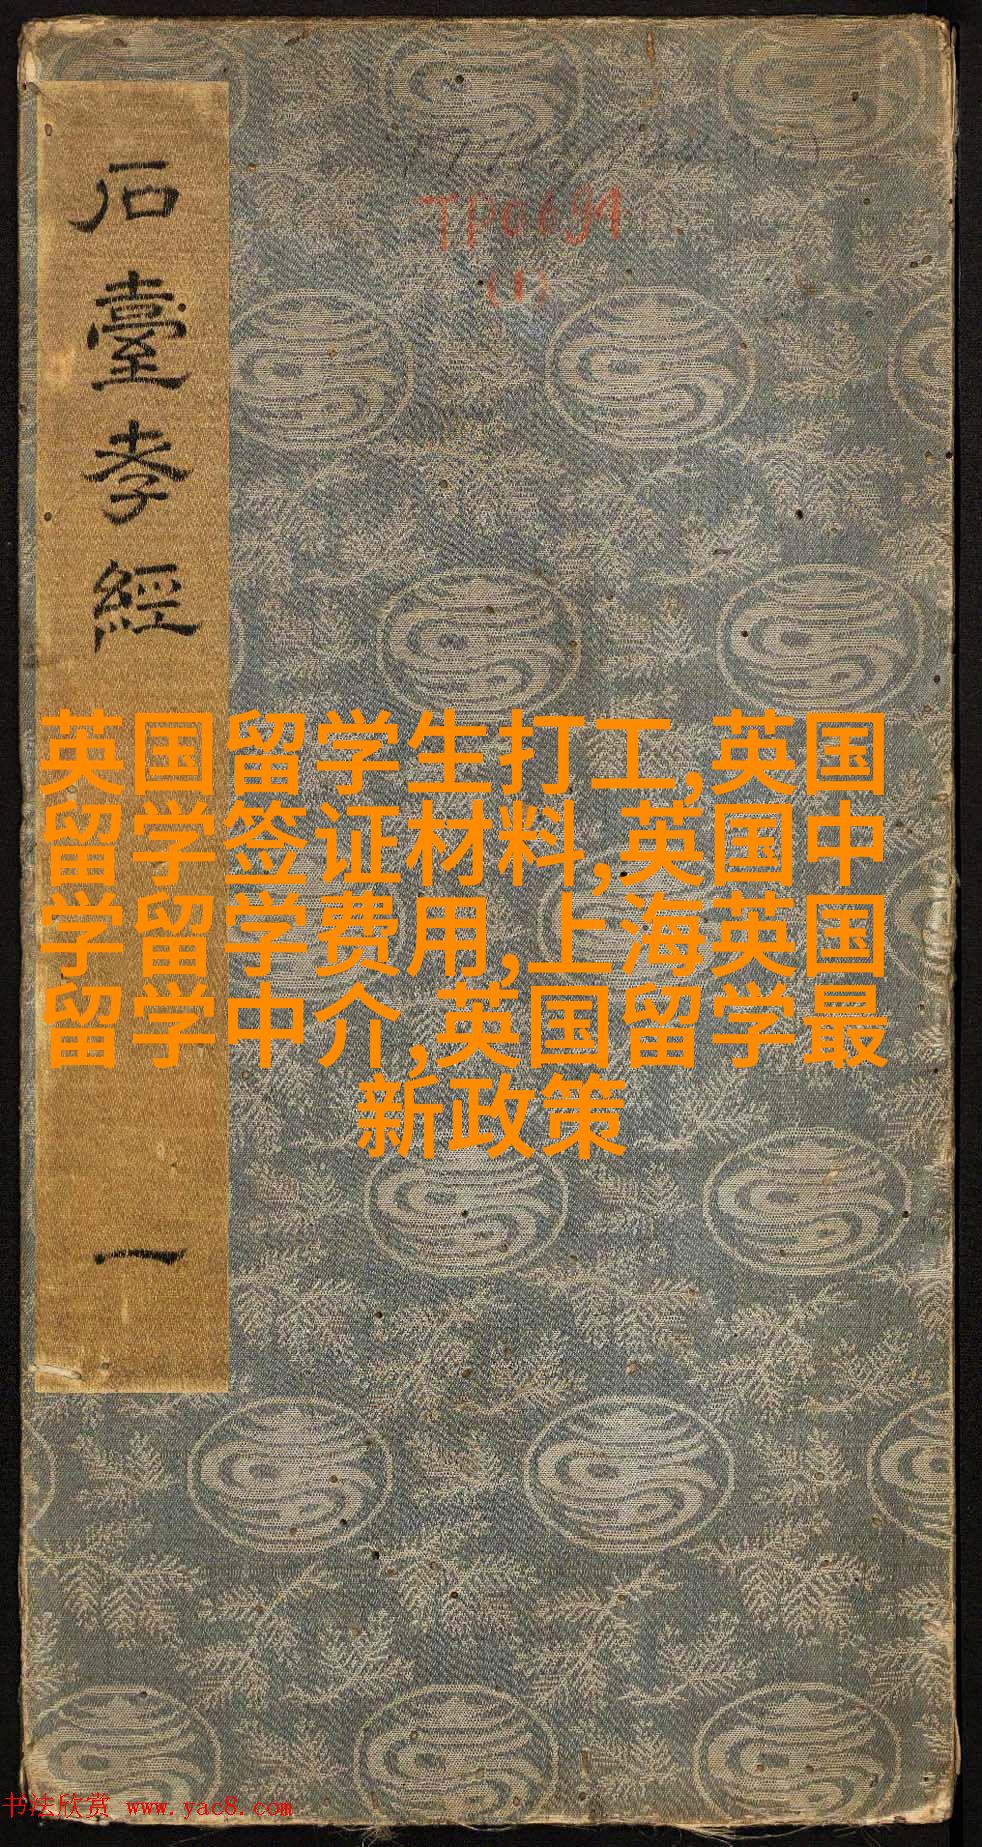 石臺孝經 一
TP0691
(1)
英国留学生打工,英国
留学签证材料,英国中
学留学费用,上海英国
留学中介,英国留学最
新政策
书法欣赏 www.yac8.com